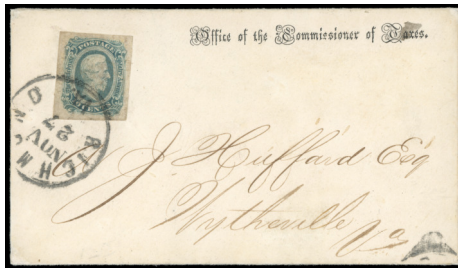 Office of the Commissioner of Taxes.
POSTAGE
RICHMOND
NOV
27
J. Huffard Esq
Wytheville
Va